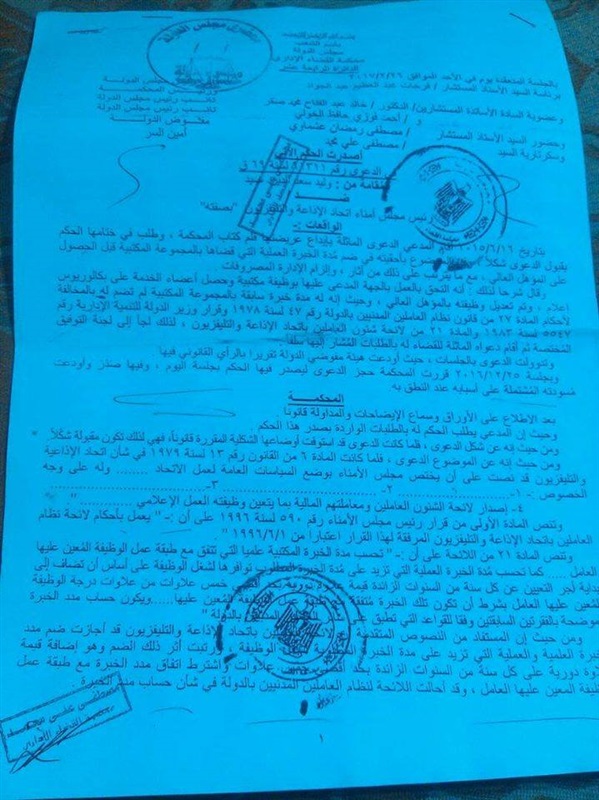 بسم الله الرحمن الرحيم
باسم الشعب
مجلس الدولة
محكمة القضاء الإداري
الدائرة الرابعة عشر
بالجلسة المنعقدة يوم في الأحد الموافق ٢٠١٧/٢/٢٦
برئاسة السيد الأستاذ المستشار / فرحات عبد العظيم عبد الجواد نائب رئيس مجلس الدولة
ورئيس المحكمة
وعضوية السادة الأساتذة المستشارين / الدكتور / خالد عبد الفتاح محمد صقر نائب رئيس مجلس الدولة
و / أحمد فوزي حافظ الخولي نائب رئيس مجلس الدولة
وحضور السيد الأستاذ المستشار / مصطفى رمضان عثماوي مفوض الدولة
وسكرتارية السيد / مصطفى علي محمد أمين السر
أصدرت الحكم الآتي
الدعوى رقم لسنة ٦٩ ق
المقامة من : وليد سعد الدين سيد
ضد
رئيس مجلس أمناء اتحاد الإذاعة والتليفزيون "بصفته"
الواقعات :-
بتاريخ ٢٠١٥/٦/١٦ أقام المدعي الدعوى الماثلة بإيداع عريضتها قلم كتاب المحكمة ، وطلب في ختامها الحكم
بقبول الدعوى شكلاً وفي الموضوع بأحقيته في ضم مدة الخبرة العملية التي قضاها بالمجموعة المكتبية قبل الحصول
على المؤهل العالي ، مع ما يترتب على ذلك من آثار ، وإلزام الإدارة المصروفات .
وقال شرحاً لذلك : أنه التحق بالعمل بالجهة المدعى عليها بوظيفة مكتبية وحصل أعضاء الخدمة على بكالوريوس
إعلام ، وتم تعديل وظيفته بالمؤهل العالي ، وحيث إن له مدة خبرة سابقة بالمجموعة المكتبية لم تضم له بالمخالفة
لأحكام المادة ٢٧ من قانون نظام العاملين المدنيين بالدولة رقم ٤٧ لسنة ١٩٧٨ وقرار وزير الدولة للتنمية الإدارية رقم
٥٥٤٧ لسنة ١٩٨٣ والمادة ٢١ من لائحة شئون العاملين باتحاد الإذاعة والتليفزيون ، لذلك لجأ إلى لجنة التوفيق
المختصة ثم أقام دعواه الماثلة للقضاء له بالطلبات المشار إليها سلفاً .
وتدوولت الدعوى بالجلسات ، حيث أودعت هيئة مفوضي الدولة تقريرا بالرأي القانوني فيها
وبجلسة ٢٠١٦/١٢/٢٥ قررت المحكمة حجز الدعوى ليصدر فيها الحكم بجلسة اليوم ، وفيها صدر وأودعت
مسودته المشتملة على أسبابه عند النطق به
المحكمة
بعد الإطلاع على الأوراق وسماع الإيضاحات والمداولة قانوناً .
وحيث إن المدعي يطلب الحكم له بالطلبات الواردة بصدر هذا الحكم .
ومن حيث إنه عن شكل الدعوى ، فلما كانت الدعوى قد استوفت أوضاعها الشكلية المقررة قانوناً، فهي لذلك تكون مقبولة شكلاً .
ومن حيث إنه عن الموضوع الدعوى ، فلما كانت المادة ٦ من القانون رقم ١٣ لسنة ١٩٧٩ في شأن اتحاد الإذاعية
والتليفزيون قد نصت على أن يختص مجلس الأمناء بوضع السياسات العامة لعمل الاتحاد ....... وله على وجه
الخصوص :- ١-............ ٢-............ ٣-............
٤- إصدار لائحة الشئون العاملين ومعاملتهم المالية بما يتعين وظيفته العمل الإعلامي ............"
وتنص المادة الأولى من قرار رئيس مجلس الأمناء رقم ٥٩٠ لسنة ١٩٩٦ على أن :- " يعمل بأحكام لائحة نظام
العاملين باتحاد الإذاعة والتليفزيون المرفقة لهذا القرار اعتباراً من ١٩٩٦/٦/١"
وتنص المادة ٢١ من اللائحة على أن :- " تحسب مدة الخبرة المكتبية علميا التي تتفق مع طبقة عمل الوظيفة المعين عليها
العامل ..... كما تحسب مدة الخبرة العملية التي تزيد على مدة الخبرة المطلوب توافرها لشغل الوظيفة على أساس أن تضاف إلى
بداية أجر التعيين عن كل سنة من السنوات الزائدة قيمة علاوة دورية بحد أقصى خمس علاوات من علاوات درجة الوظيفة
المعين عليها العامل بشرط أن تكون تلك الخبرة متفقة مع طبيعة عمل الوظيفة المعين عليها.....ويكون حساب مدد الخبرة
موضحة بالفقرتين السابقتين وفقا للقواعد التي تطبق على العاملين المدنيين بالدولة "
ومن حيث إن المستفاد من النصوص المتقدمة أن لائحة العاملين باتحاد الإذاعة والتليفزيون قد أجازت ضم مدد
خبرة العلمية والعملية التي تزيد على مدة الخبرة المطلوبة لشغل الوظيفة ورتبت أثر ذلك الضم وهو إضافة قيمة
علاوة دورية على كل سنة من السنوات الزائدة بحد أقصى خمس علاوات واشترط اتفاق مدد الخبرة مع طبقة عمل
وظيفة المعين عليها العامل ، وقد أحالت اللائحة لنظام العاملين المدنيين بالدولة في شأن حساب مدد الخبرة .
مصطفى علي محمد
١